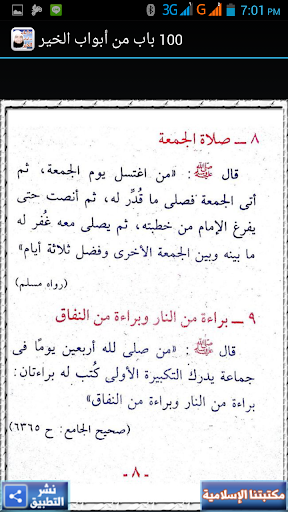 3G G 7:01 PM
100 باب من أبواب الخير
٨ ــ صلاة الجمعة
قال ﷺ : «من اغتسل يوم الجمعة، ثم
أتى الجمعة فصلى ما قُدِّر له، ثم أنصت حتى
يفرغ الإمام من خطبته، ثم يصلى معه غُفر له
ما بينه وبين الجمعة الأخرى وفضل ثلاثة أيام»
(رواه مسلم)
٩ ــ براءة من النار وبراءة من النفاق
قال ﷺ : «من صلى لله أربعين يومًا فى
جماعة يدرك التكبيرة الأولى كُتب له براءتان:
براءة من النار وبراءة من النفاق»
(صحيح الجامع: ح ٦٣٦٥)
- ٨ -
نشر
التطبيق
مكتبتنا الإسلامية